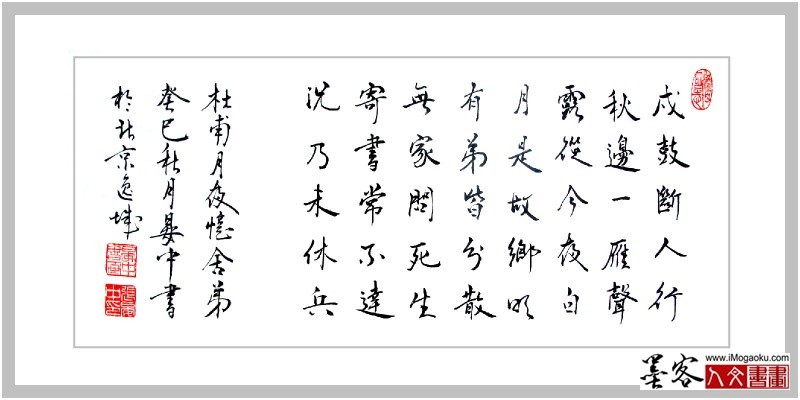 戍鼓斷人行
秋邊一雁聲
露從今夜白
月是故鄉明
有弟皆分散
無家問死生
寄書常不達
況乃未休兵
杜甫月夜憶舍弟
癸巳秋月中書
於北京逸城
墨客 www.iMogaoku.com
人文書畫